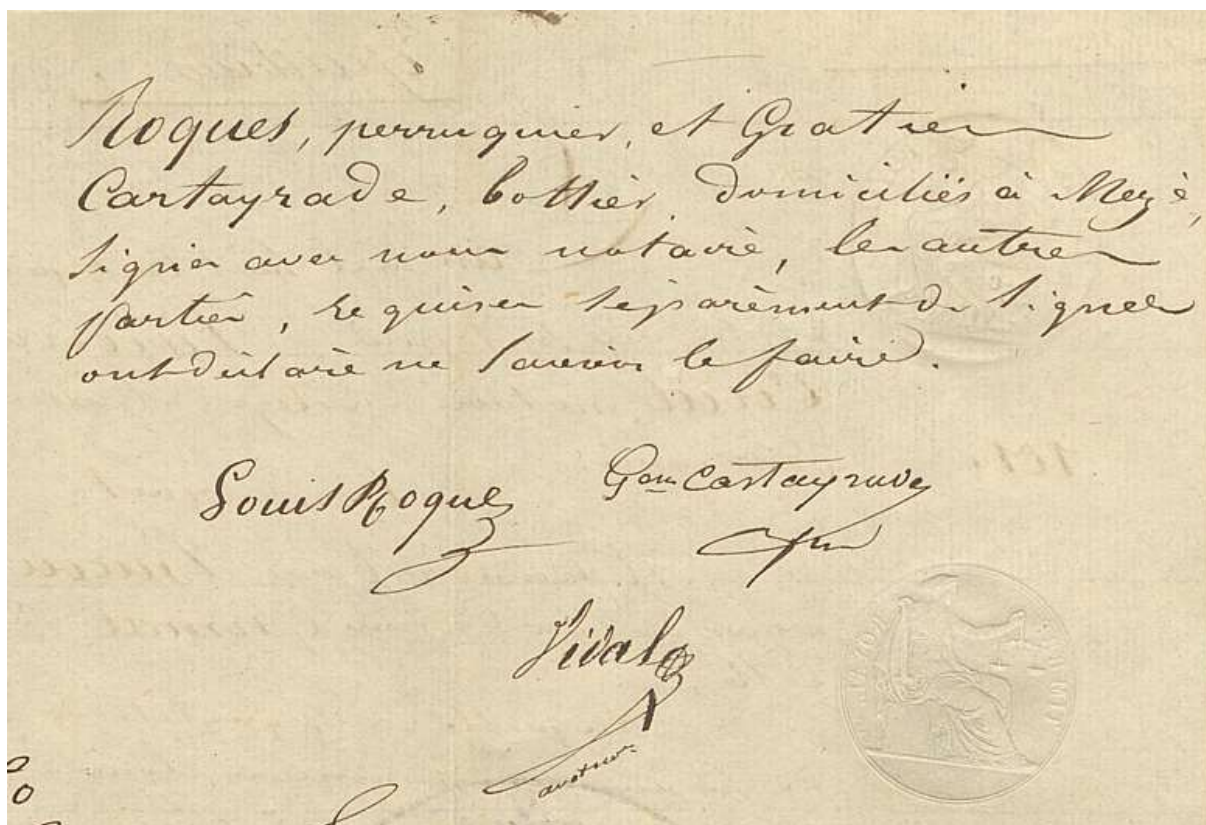 Roques, perruquier, et Gratien
Cartayrade, bottier, domiciliés à Mèze,
signés avec nous notaire, les autres
parties, requises séparément de signer
ont déclaré ne savoir le faire.
Louis Roques
Gen Cartayrade
Vidal